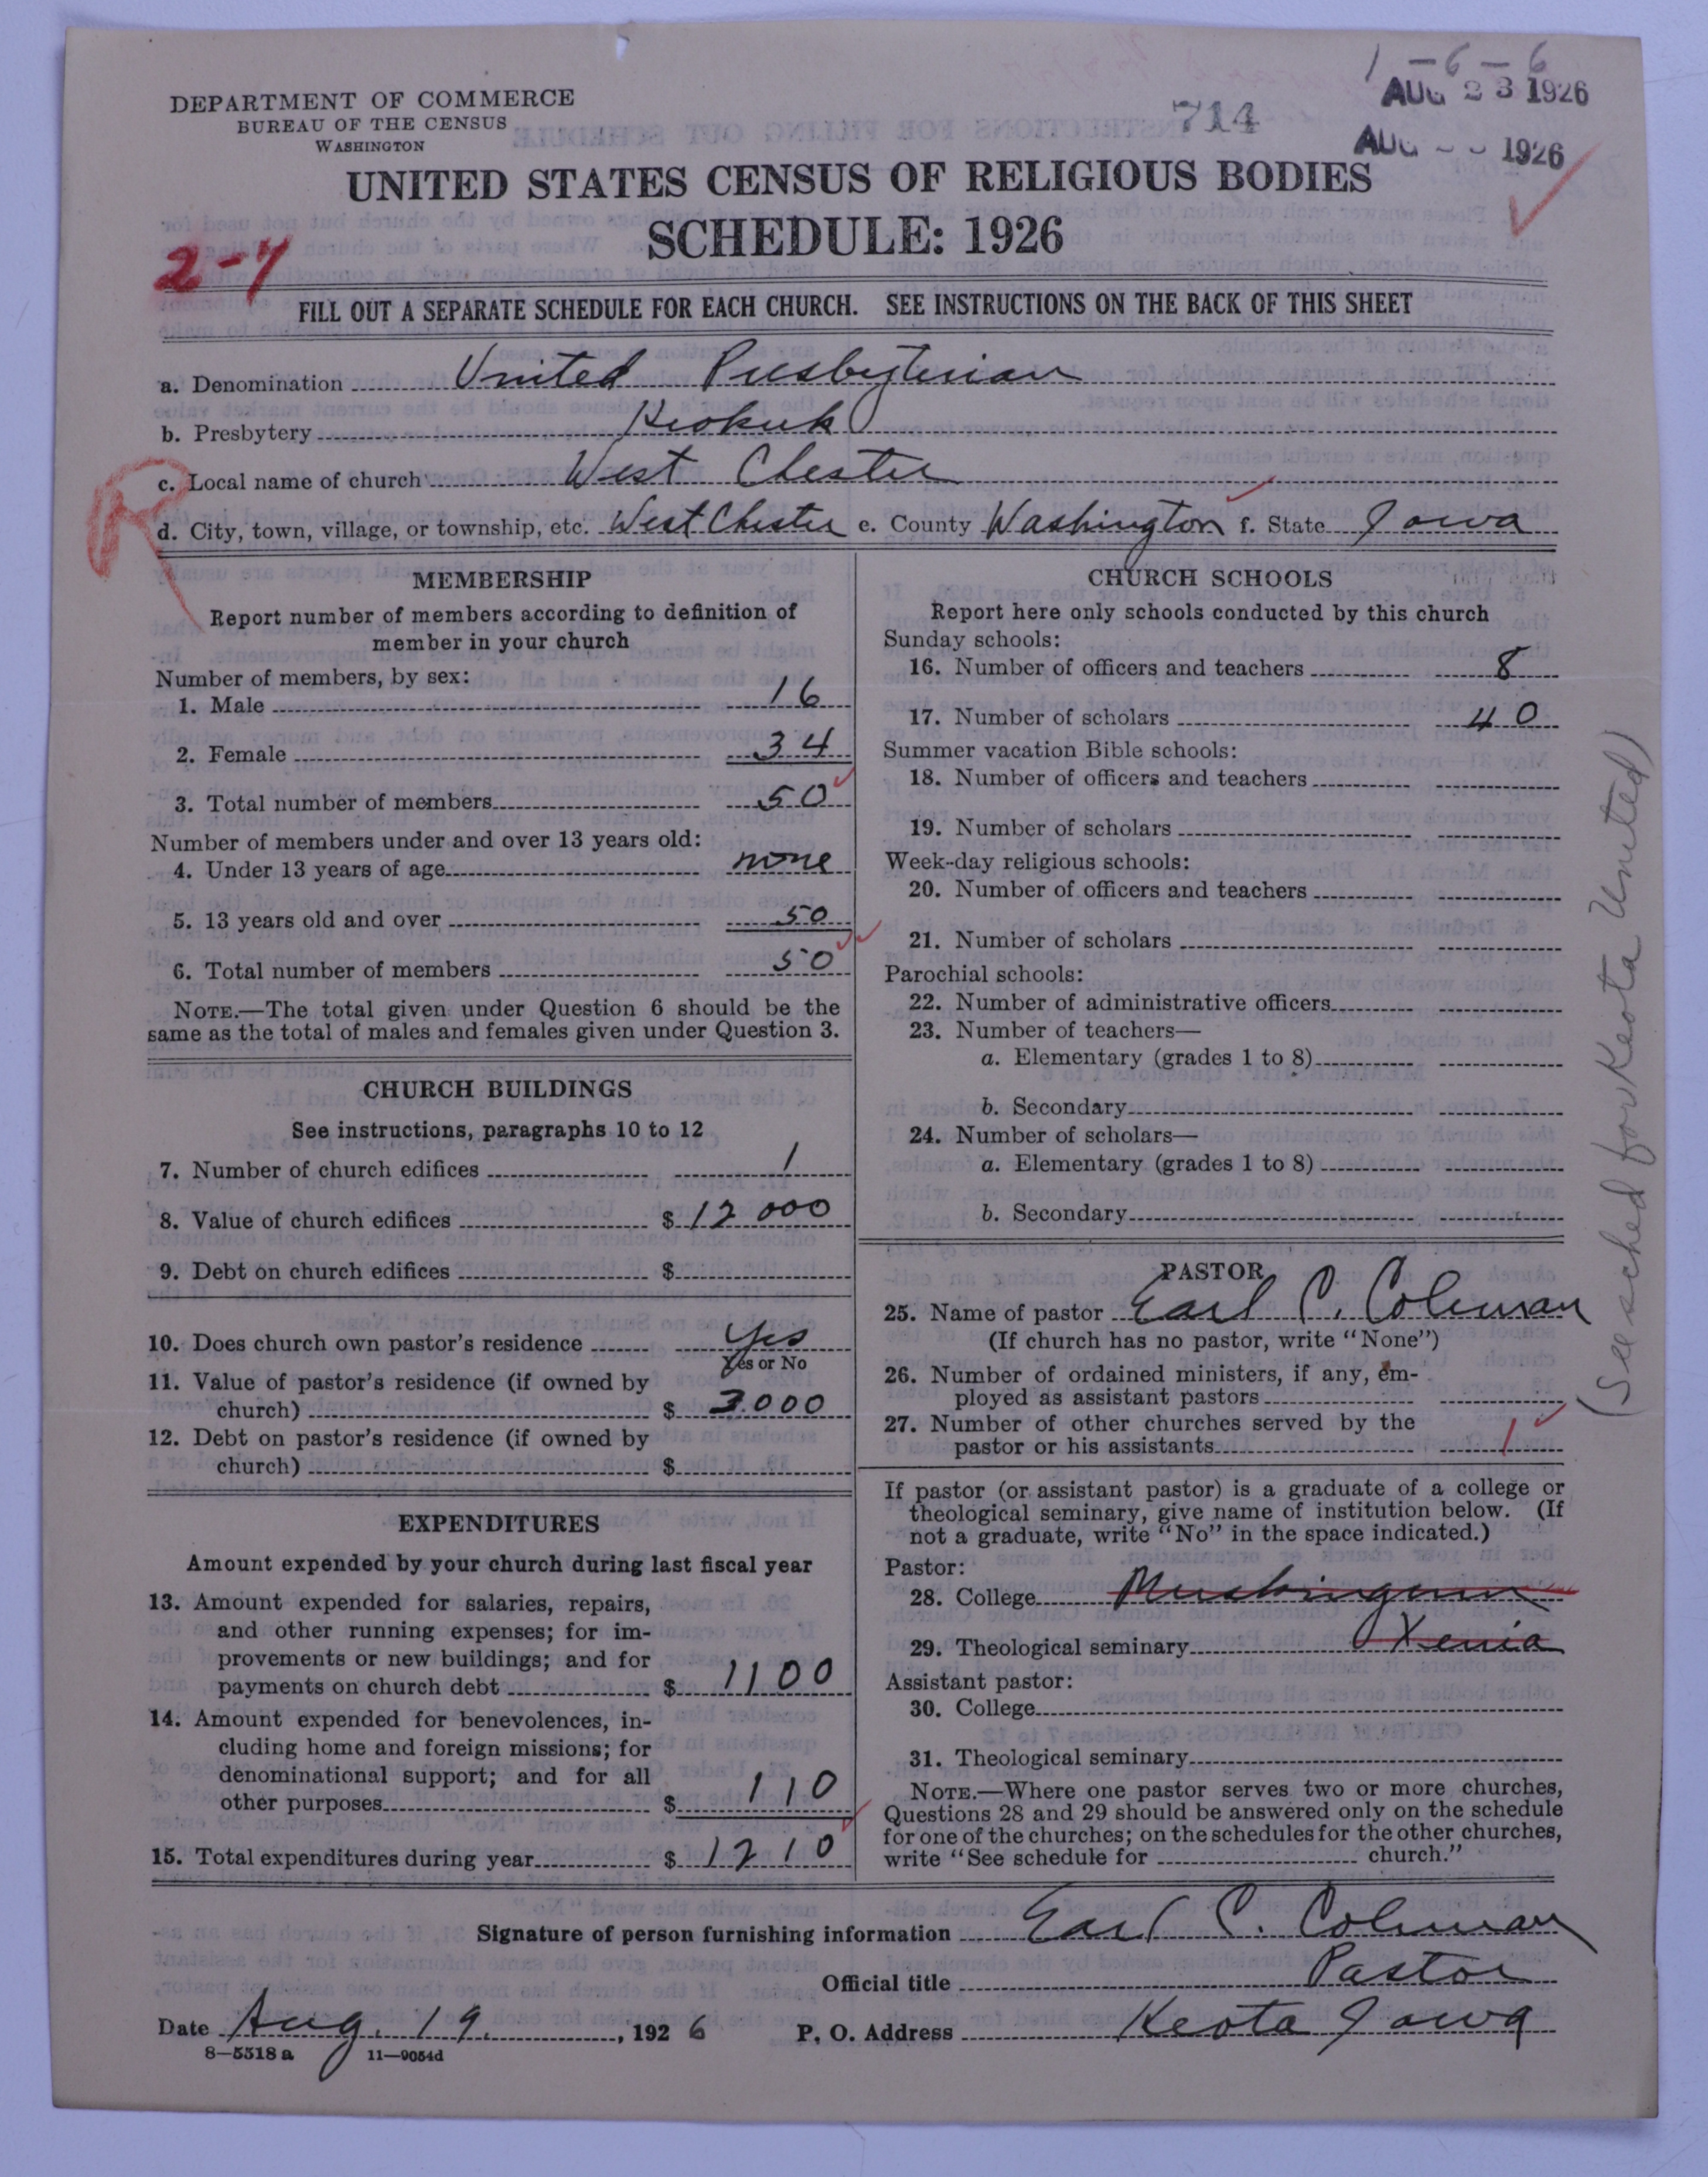 1-6-6
DEPARTMENT OF COMMERCE
BUREAU OF THE CENSUS
WASHINGTON
714
AUG 23 1926
AUG 1926
UNITED STATES CENSUS OF RELIGIOUS BODIES
SCHEDULE: 1926
2-7
FILL OUT A SEPARATE SCHEDULE FOR EACH CHURCH. SEE INSTRUCTIONS ON THE BACK OF THIS SHEET
a. Denomination United Presbyterian
b. Presbytery Keokuk
R
c. Local name of church West Chester
d. City, town, village, or township, etc. West Chester e. County Washington f. State Iowa
MEMBERSHIP
Report number of members according to definition of
member in your church
Number of members, by sex:
1. Male 16
2. Female 34
3. Total number of members 50
Number of members under and over 13 years old:
4. Under 13 years of age none
5. 13 years old and over 50
6. Total number of members 50
NOTE.—The total given under Question 6 should be the
same as the total of males and females given under Question 3.
CHURCH BUILDINGS
See instructions, paragraphs 10 to 12
7. Number of church edifices 1
8. Value of church edifices $ 12000
9. Debt on church edifices $
10. Does church own pastor's residence Yes
Yes or No
11. Value of pastor's residence (if owned by
church) $ 3000
12. Debt on pastor's residence (if owned by
church) $
EXPENDITURES
Amount expended by your church during last fiscal year
13. Amount expended for salaries, repairs,
and other running expenses; for im-
provements or new buildings; and for
payments on church debt $ 1100
14. Amount expended for benevolences, in-
cluding home and foreign missions; for
denominational support; and for all
other purposes $ 110
15. Total expenditures during year $ 1210
CHURCH SCHOOLS
Report here only schools conducted by this church
Sunday schools:
16. Number of officers and teachers 8
17. Number of scholars 40
Summer vacation Bible schools:
18. Number of officers and teachers
19. Number of scholars
Week-day religious schools:
20. Number of officers and teachers
21. Number of scholars
Parochial schools:
22. Number of administrative officers
23. Number of teachers—
a. Elementary (grades 1 to 8)
b. Secondary
24. Number of scholars—
a. Elementary (grades 1 to 8)
b. Secondary
PASTOR
25. Name of pastor Earl C. Coleman
(If church has no pastor, write "None")
26. Number of ordained ministers, if any, em-
ployed as assistant pastors
27. Number of other churches served by the
pastor or his assistants 1
If pastor (or assistant pastor) is a graduate of a college or
theological seminary, give name of institution below. (If
not a graduate, write "No" in the space indicated.)
Pastor:
28. College Muskingum
29. Theological seminary Xenia
Assistant pastor:
30. College
31. Theological seminary
NOTE.—Where one pastor serves two or more churches,
Questions 28 and 29 should be answered only on the schedule
for one of the churches; on the schedules for the other churches,
write "See schedule for church."
(See sched for Keota United)
Signature of person furnishing information Earl C. Coleman
Official title Pastor
Date Aug. 19, 1926 P. O. Address Keota Iowa
8—5518 a 11—9054d